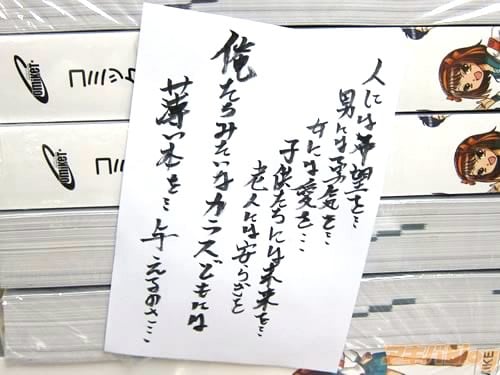 人には希望を…
男には勇気を…
女には愛を…
子供たちには未来を…
老人には安らぎを
俺たちみたいなカラスどもには
薄い本を…与えるのさ…
comiket
comiket